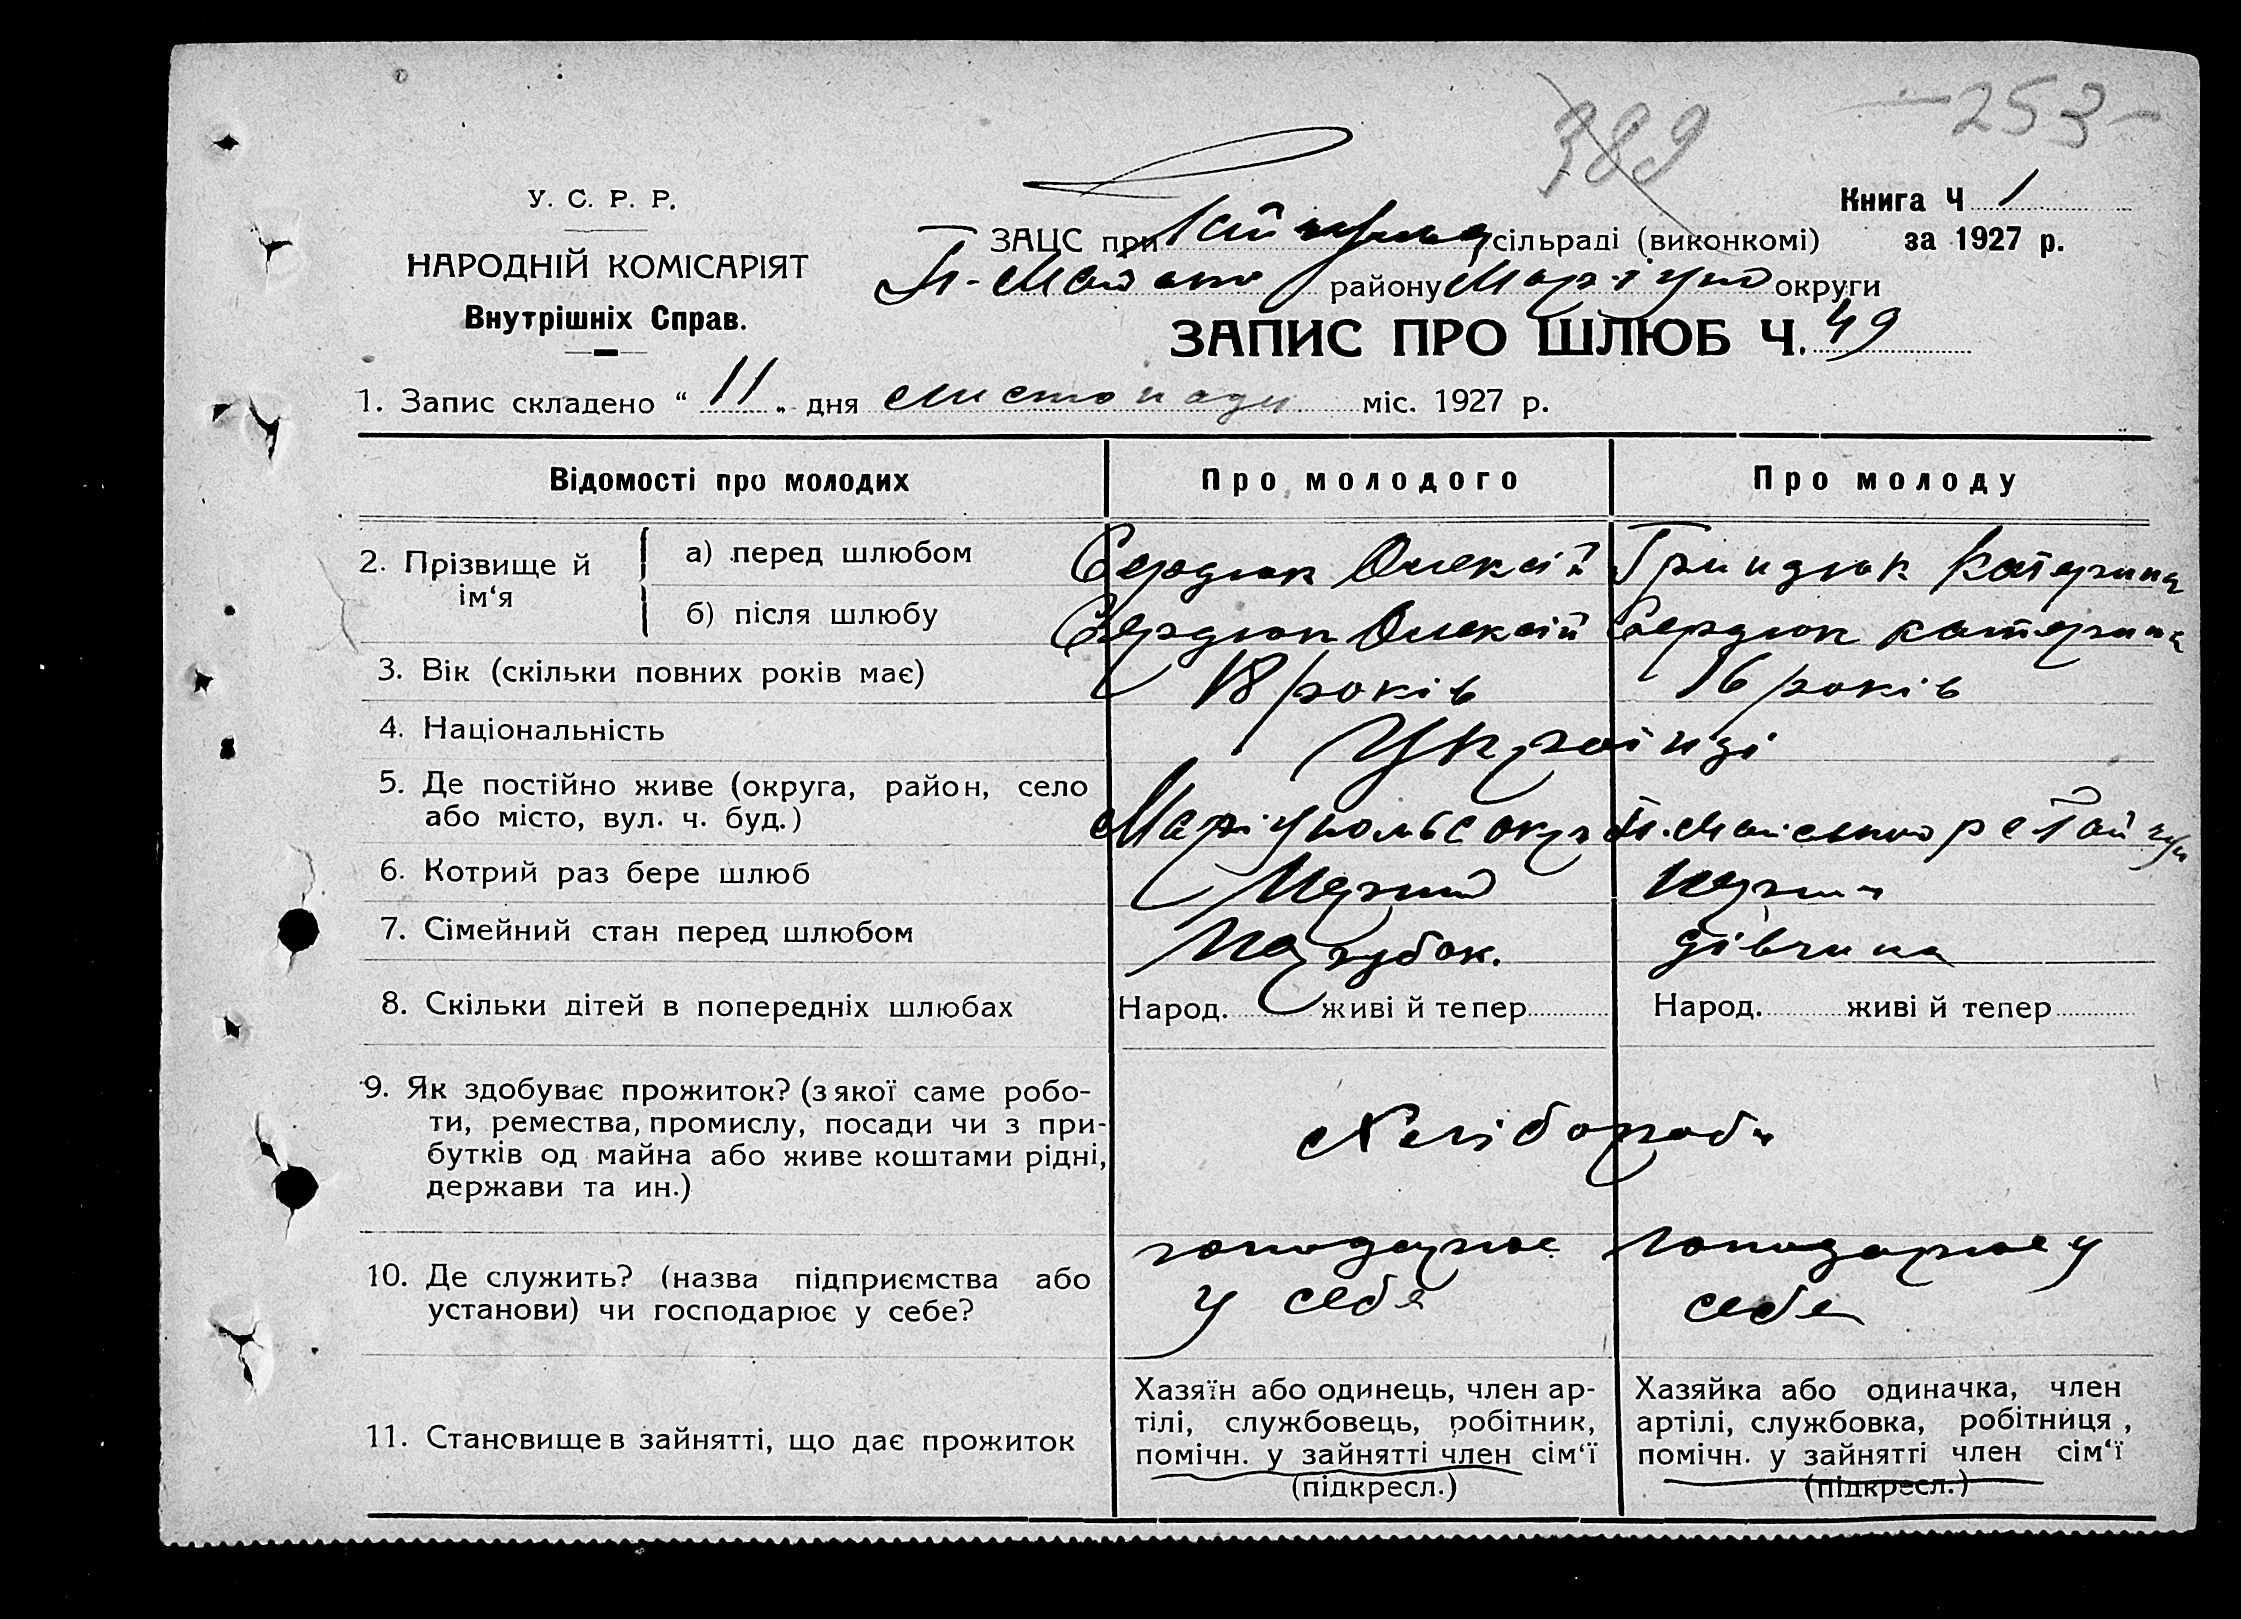 389
-253-
У. С. Р. Р.
НАРОДНІЙ КОМІСАРІЯТ
Внутрішніх Справ.
Книга Ч 1
за 1927 р.
ЗАЦС при сільраді (виконкомі)
району Маріуп округи
ЗАПИС ПРО ШЛЮБ Ч. 49
1. Запис складено “ 11 „ дня листопаду міс. 1927 р.
Відомості про молодих Про молодого Про молоду
2. Прізвище й ім‘я
а) перед шлюбом Сердюк Олексій Гриндюк Катерина
б) після шлюбу Сердюк Олексій Сердюк катерина
3. Вік (скільки повних років має) 18 років 16 років
4. Національність Українці
5. Де постійно живе (округа, район, село
або місто, вул. ч. буд.) Маріупольс окр
6. Котрий раз бере шлюб Перший перший
7. Сімейний стан перед шлюбом Парубок. дівчина
8. Скільки дітей в попередніх шлюбах Народ. живі й тепер Народ. живі й тепер
9. Як здобуває прожиток? (з якої саме робо-
ти, ремества, промислу, посади чи з при-
бутків од майна або живе коштами рідні,
держави та ин.)
Хлібороби
10. Де служить? (назва підприємства або
установи) чи господарює у себе?
господарює
у себе
господарює у
себе
11. Становище в зайнятті, що дає прожиток
Хазяїн або одинець, член ар-
тілі, службовець, робітник,
помічн. у зайнятті член сім‘ї
(підкресл.)
Хазяйка або одиначка, член
артілі, службовка, робітниця,
помічн. у зайнятті член сім‘ї
(підкресл.)